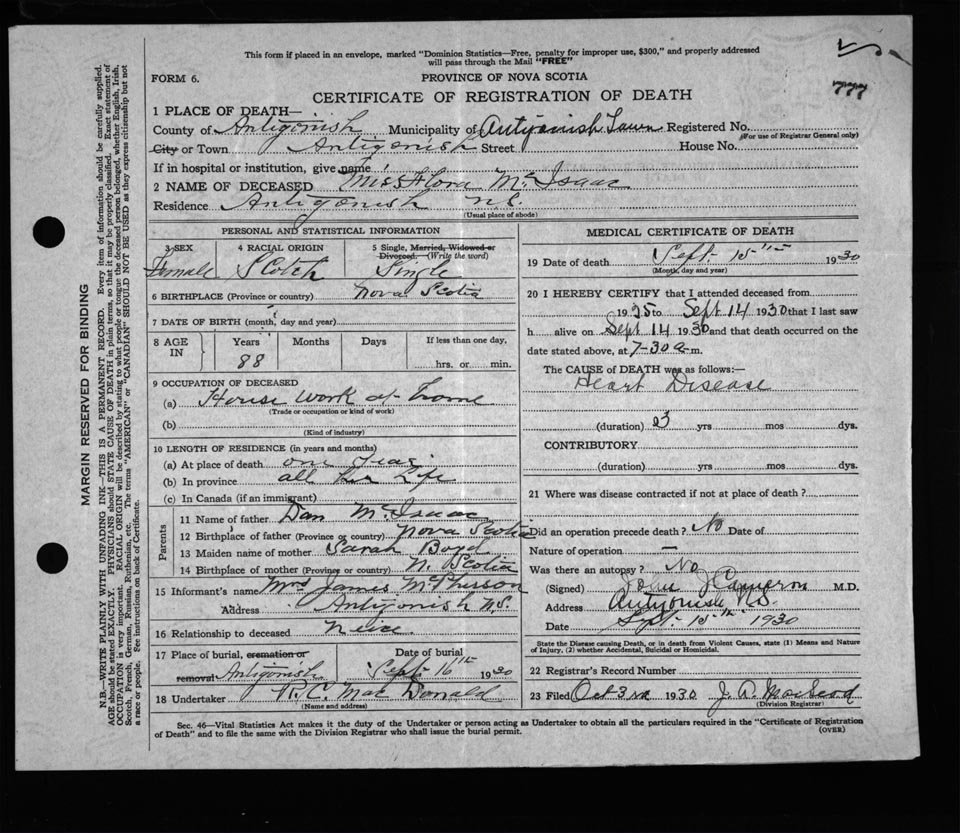 This form if placed in an envelope, marked "Dominion Statistics—Free, penalty for improper use, $300," and properly addressed
will pass through the Mail "FREE"
FORM 6.
PROVINCE OF NOVA SCOTIA
777
CERTIFICATE OF REGISTRATION OF DEATH
1 PLACE OF DEATH—
County of Antigonish Municipality of Antigonish Town Registered No.
(For use of Registrar General only)
City or Town Antigonish Street House No.
If in hospital or institution, give name
2 NAME OF DECEASED Miss Flora McIsaac
Residence Antigonish N.S.
(Usual place of abode)
PERSONAL AND STATISTICAL INFORMATION
3 SEX 4 RACIAL ORIGIN 5 Single, Married, Widowed or
Divorced. (Write the word)
Female Scotch Single
6 BIRTHPLACE (Province or country) Nova Scotia
7 DATE OF BIRTH (month, day and year)
8 AGE IN Years Months Days If less than one day,
88 hrs. or min.
9 OCCUPATION OF DECEASED
(a) House work at home
(Trade or occupation or kind of work)
(b)
(Kind of industry)
10 LENGTH OF RESIDENCE (in years and months)
(a) At place of death one year
(b) In province all her life
(c) In Canada (if an immigrant)
Parents
11 Name of father Dan McIsaac
12 Birthplace of father (Province or country) Nova Scotia
13 Maiden name of mother Sarah Boyd
14 Birthplace of mother (Province or country) N. Scotia
15 Informant's name Mrs James McPherson
Address Antigonish N.S.
16 Relationship to deceased Neice
17 Place of burial, cremation or removal Date of burial
Antigonish Sept 16th 1930
18 Undertaker MacDonald
(Name and address)
MEDICAL CERTIFICATE OF DEATH
19 Date of death Sept 15th 1930
(Month, day and year)
20 I HEREBY CERTIFY that I attended deceased from
1925 to Sept 14 1930 that I last saw
h alive on Sept 14 1930 and that death occurred on
date stated above, at 7-30 a m.
The CAUSE of DEATH was as follows:—
Heart Disease
(duration) 3 yrs mos dys.
CONTRIBUTORY
(duration) yrs mos dys.
21 Where was disease contracted if not at place of death?
Did an operation precede death? No Date of
Nature of operation —
Was there an autopsy? No
(Signed) John J Cameron M.D.
Address Antigonish N.S.
Date Sept 15th 1930
State the Disease causing Death, or in death from Violent Causes, state (1) Means and Nature
of Injury, (2) whether Accidental, Suicidal or Homicidal.
22 Registrar's Record Number
23 Filed Oct 3rd 1930 J. D. MacLeod
(Division Registrar)
Sec. 46—Vital Statistics Act makes it the duty of the Undertaker or person acting as Undertaker to obtain all the particulars required in the "Certificate of Registration
of Death" and to file the same with the Division Registrar who shall issue the burial permit.
(OVER)
MARGIN RESERVED FOR BINDING
N.B.—WRITE PLAINLY WITH UNFADING INK—THIS IS A PERMANENT RECORD. Every item of information should be carefully supplied.
AGE should be stated EXACTLY. PHYSICIANS should STATE CAUSE OF DEATH in plain terms, so that it may be properly classified. Exact statement of
OCCUPATION is very important. RACIAL ORIGIN will be described by stating to what people or tongue the deceased person belonged, whether English, Irish,
Scotch, French, German, Russian, Ruthenian, etc. The terms "AMERICAN" or "CANADIAN" SHOULD NOT BE USED as they express citizenship but not
a race or people. See instructions on back of Certificate.